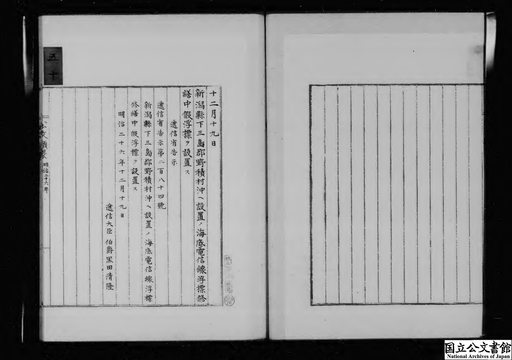 十二月十九日
新潟縣下三島郡野積村沖ヘ設置ノ海底電信線浮標修
繕中假浮標ヲ設置ス
遞信省告示
遞信省告示第二百八十四號
新潟縣下三島郡野積村沖ヘ設置ノ海底電信線浮標
修繕中假浮標ヲ設置ス
明治二十六年十二月十九日
遞信大臣 伯爵黒田清隆
五十
公文類聚 明治二十六年
国立公文書館
National Archives of Japan